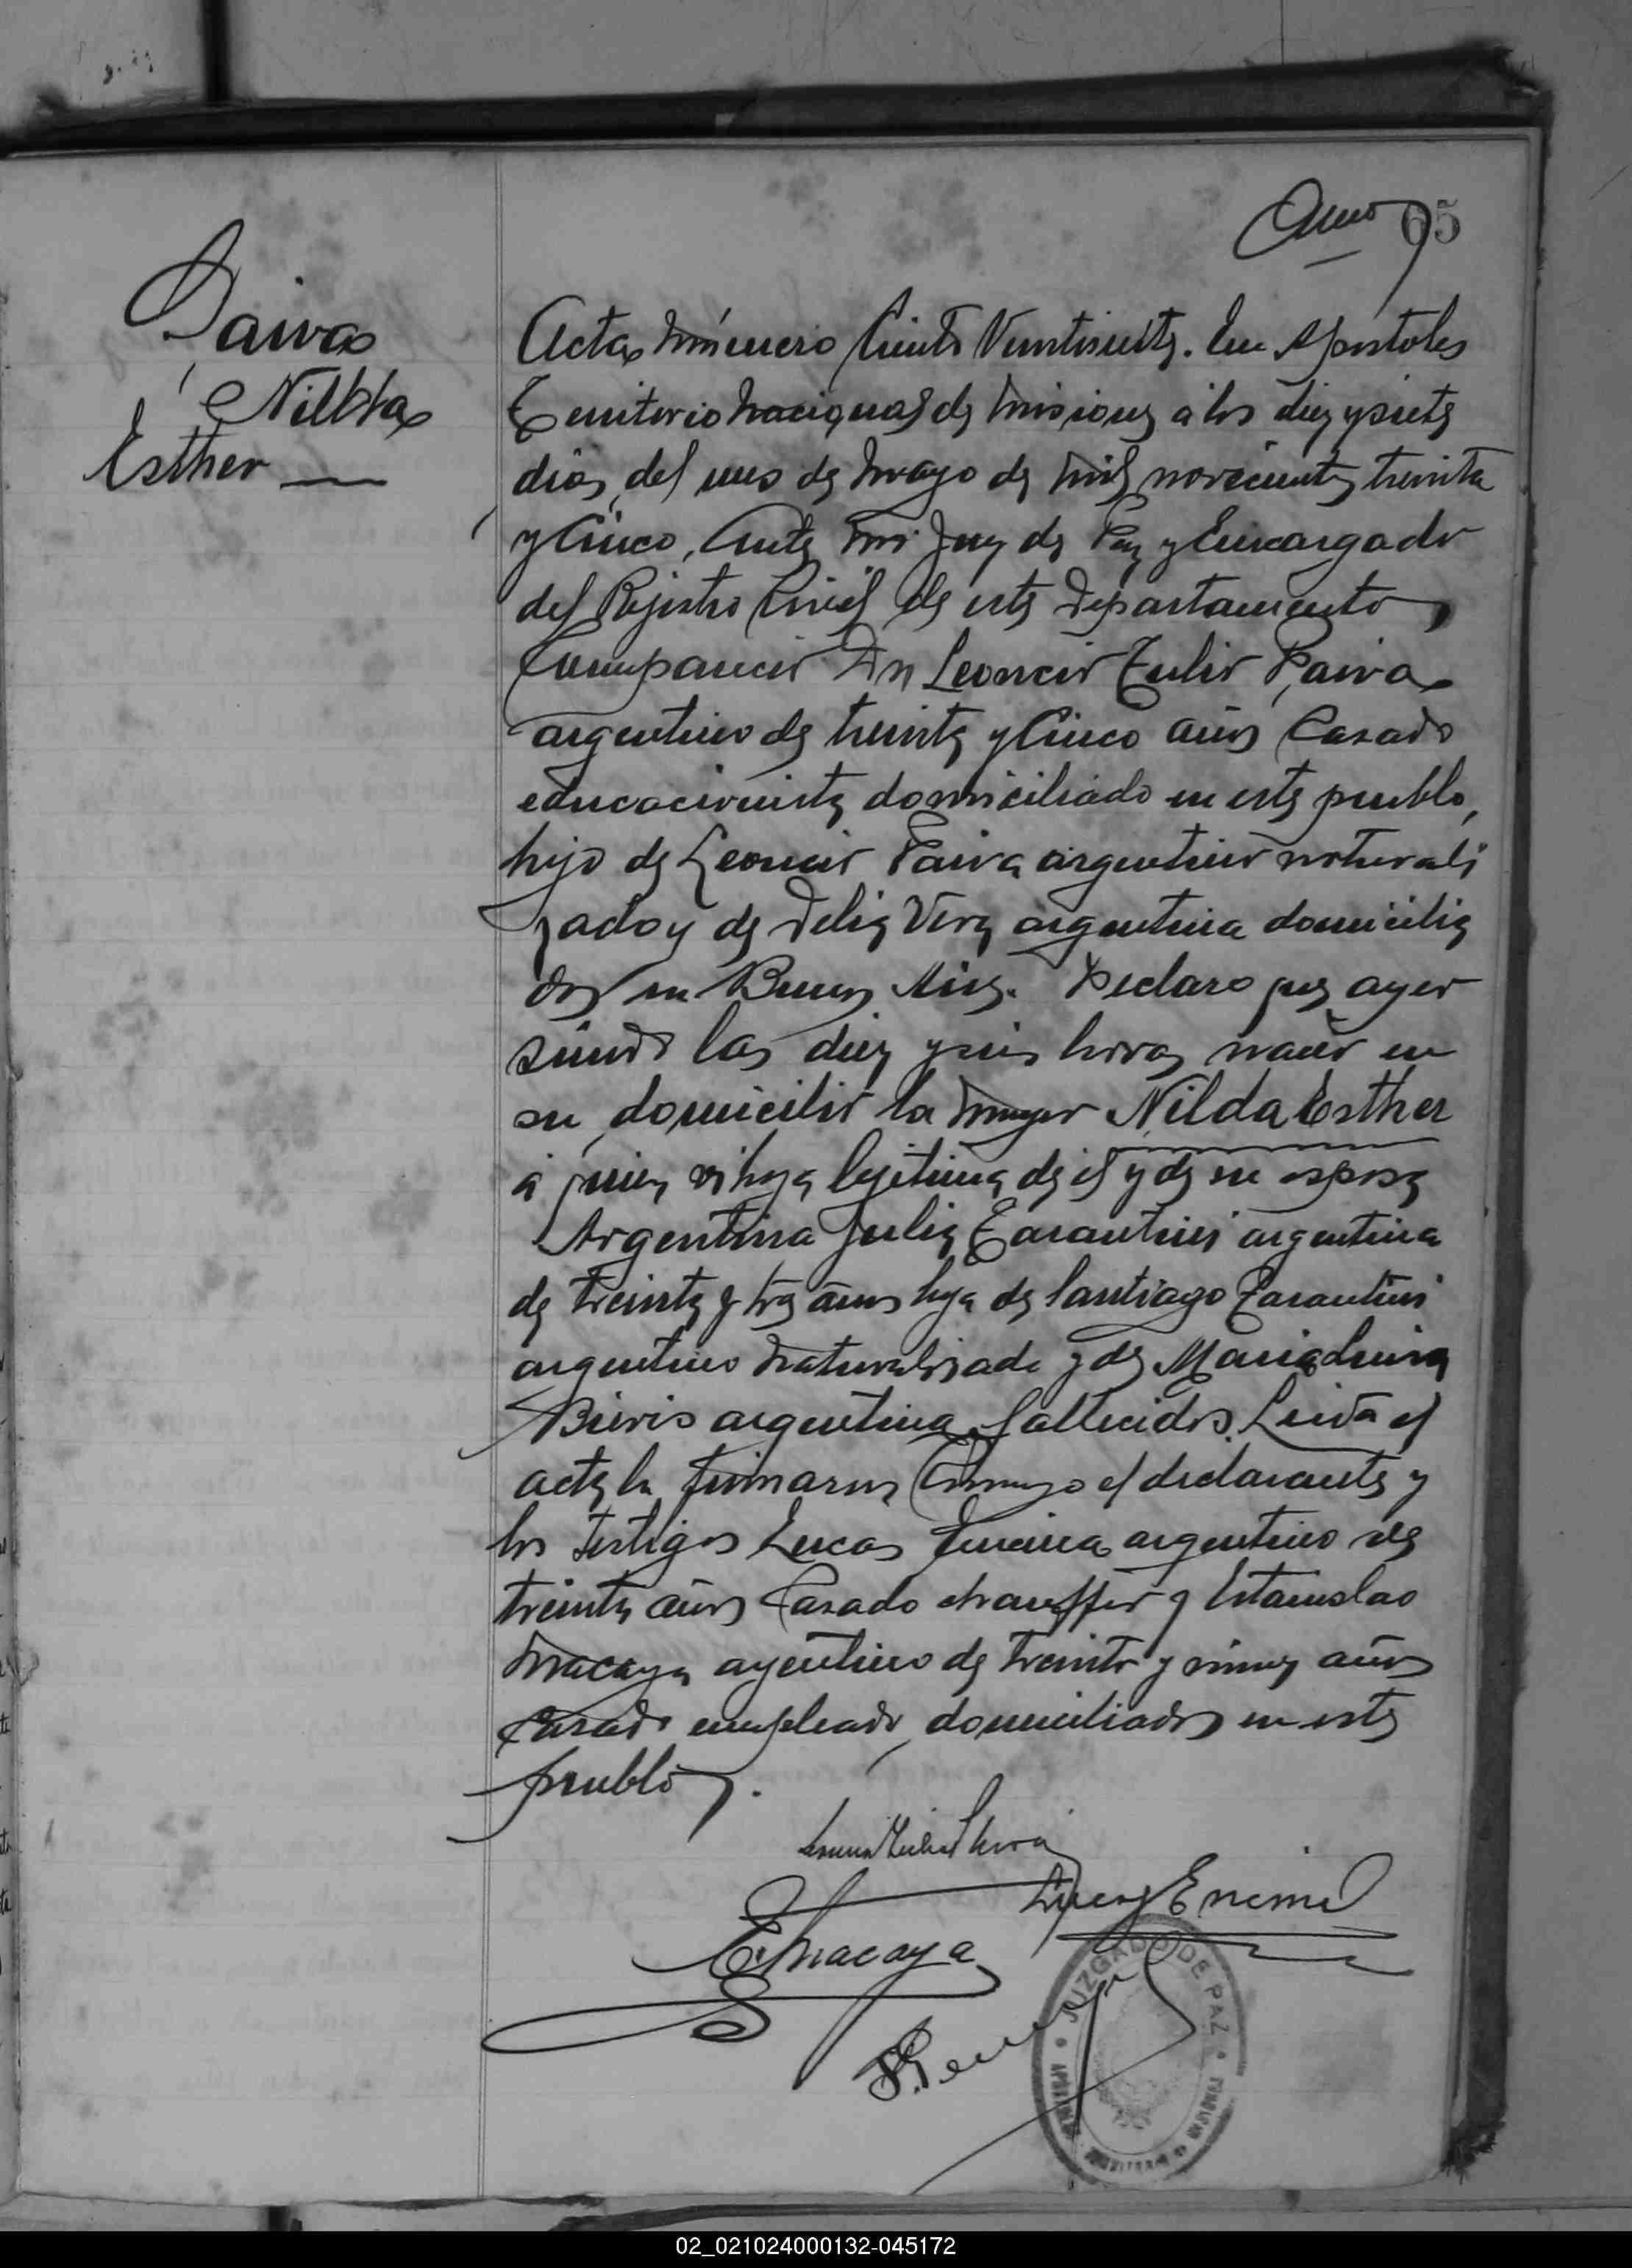 65
Paiva
Nilda
Esther
Acta número Ciento Veintisiete. En Apóstoles
Territorio Nacional de Misiones a los diez y siete
dias del mes de Mayo de mil novecientos treinta
y Cinco, Ante mi Juez de Paz y Encargado
del Rejistro Civil de este Departamento
Compareció Dn Leoncio Tulio Paiva
argentino de treinta y Cinco años Casado
educacionista domiciliado en este pueblo,
hijo de Leoncio Paiva argentino naturali
zado y de Delia Vera argentina domicilia
dos en Buenos Aires. Declaro que ayer
siendo las diez y seis horas nació en
su domicilio la mujer Nilda Esther
a quien vi hija lejitima de él y de su esposa
Argentina Julia Tarantini argentina
de treinta y tres años hija de Santiago Tarantini
argentino naturalizado y de Maria Luisa
argentina fallecidos. Leida el
acta la firmaron Conmigo el declarante y
los testigos Lucas Encina argentino de
treinta años Casado chauffer y Estanislao
Macaya argentino de treinta y nueve años
casado empleado, domiciliados en este
pueblo.
Lucas Encina
E. Macaya
JUZGADO DE PAZ
02_021024000132-045172